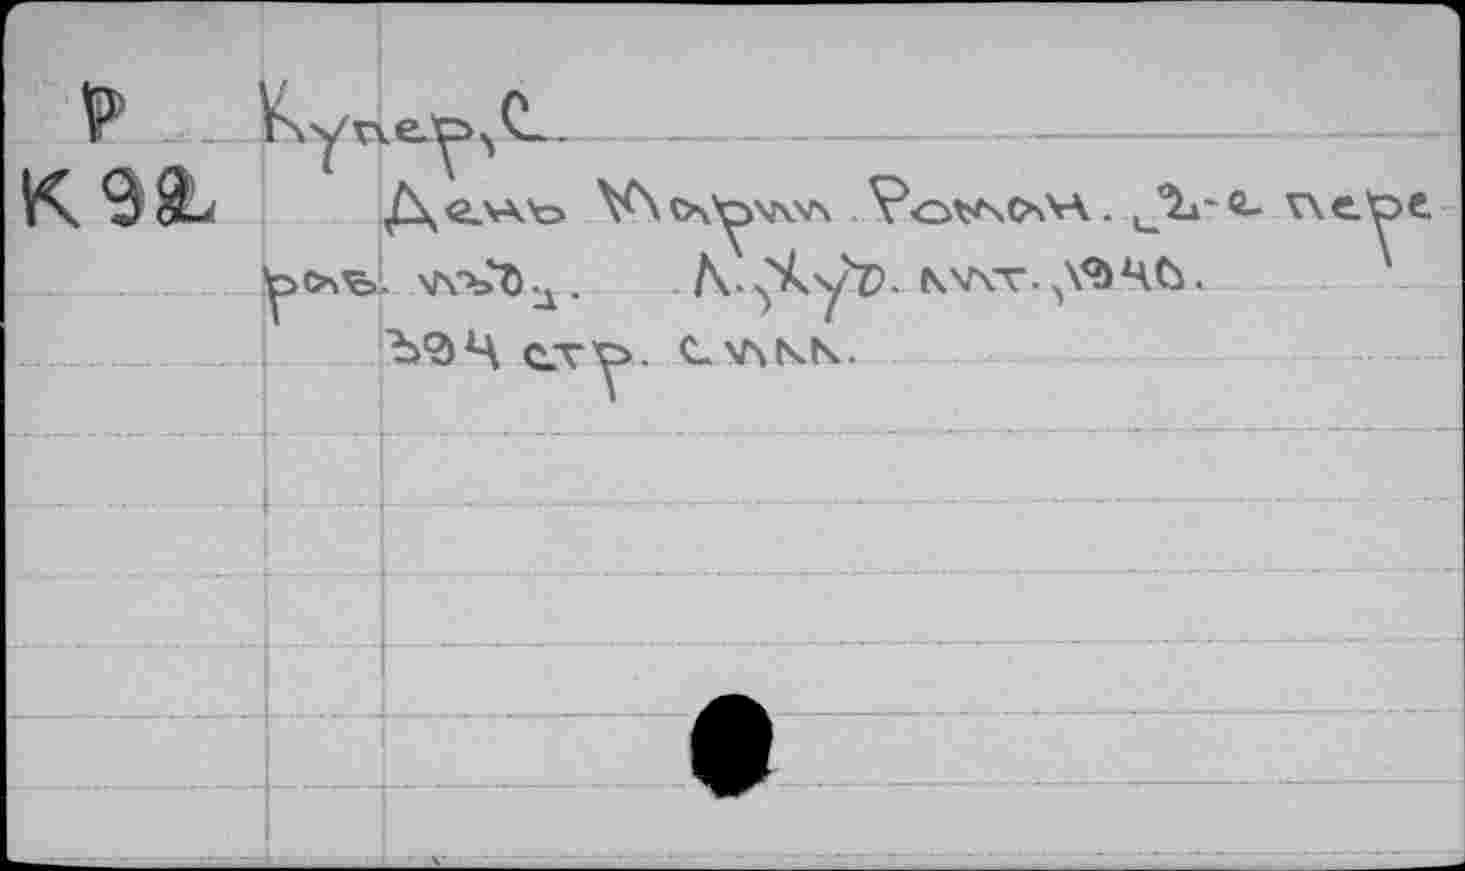 Р Купер, С.
К 92 День Марии. Роман. 2-е пере
раб. изд. Л., Худ. лит., 1940.
394 стр. с илл.